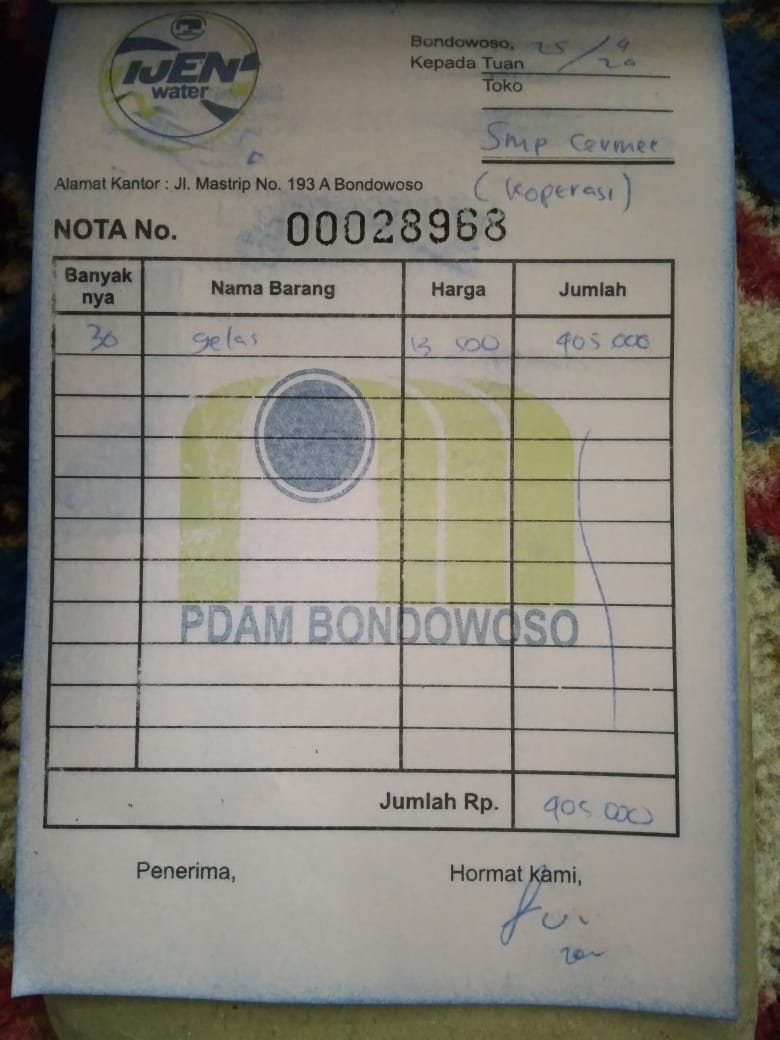 IJEN
water
Bondowoso, 25 /
Kepada Tuan 20
Toko
Smp Cermee
(Koperasi)
Alamat Kantor : Jl. Mastrip No. 193 A Bondowoso
NOTA No. 00028968
Banyak nya Nama Barang Harga Jumlah
30 gelas 13 500 405 000
PDAM BONDOWOSO
Jumlah Rp. 405 000
Penerima, Hormat kami,